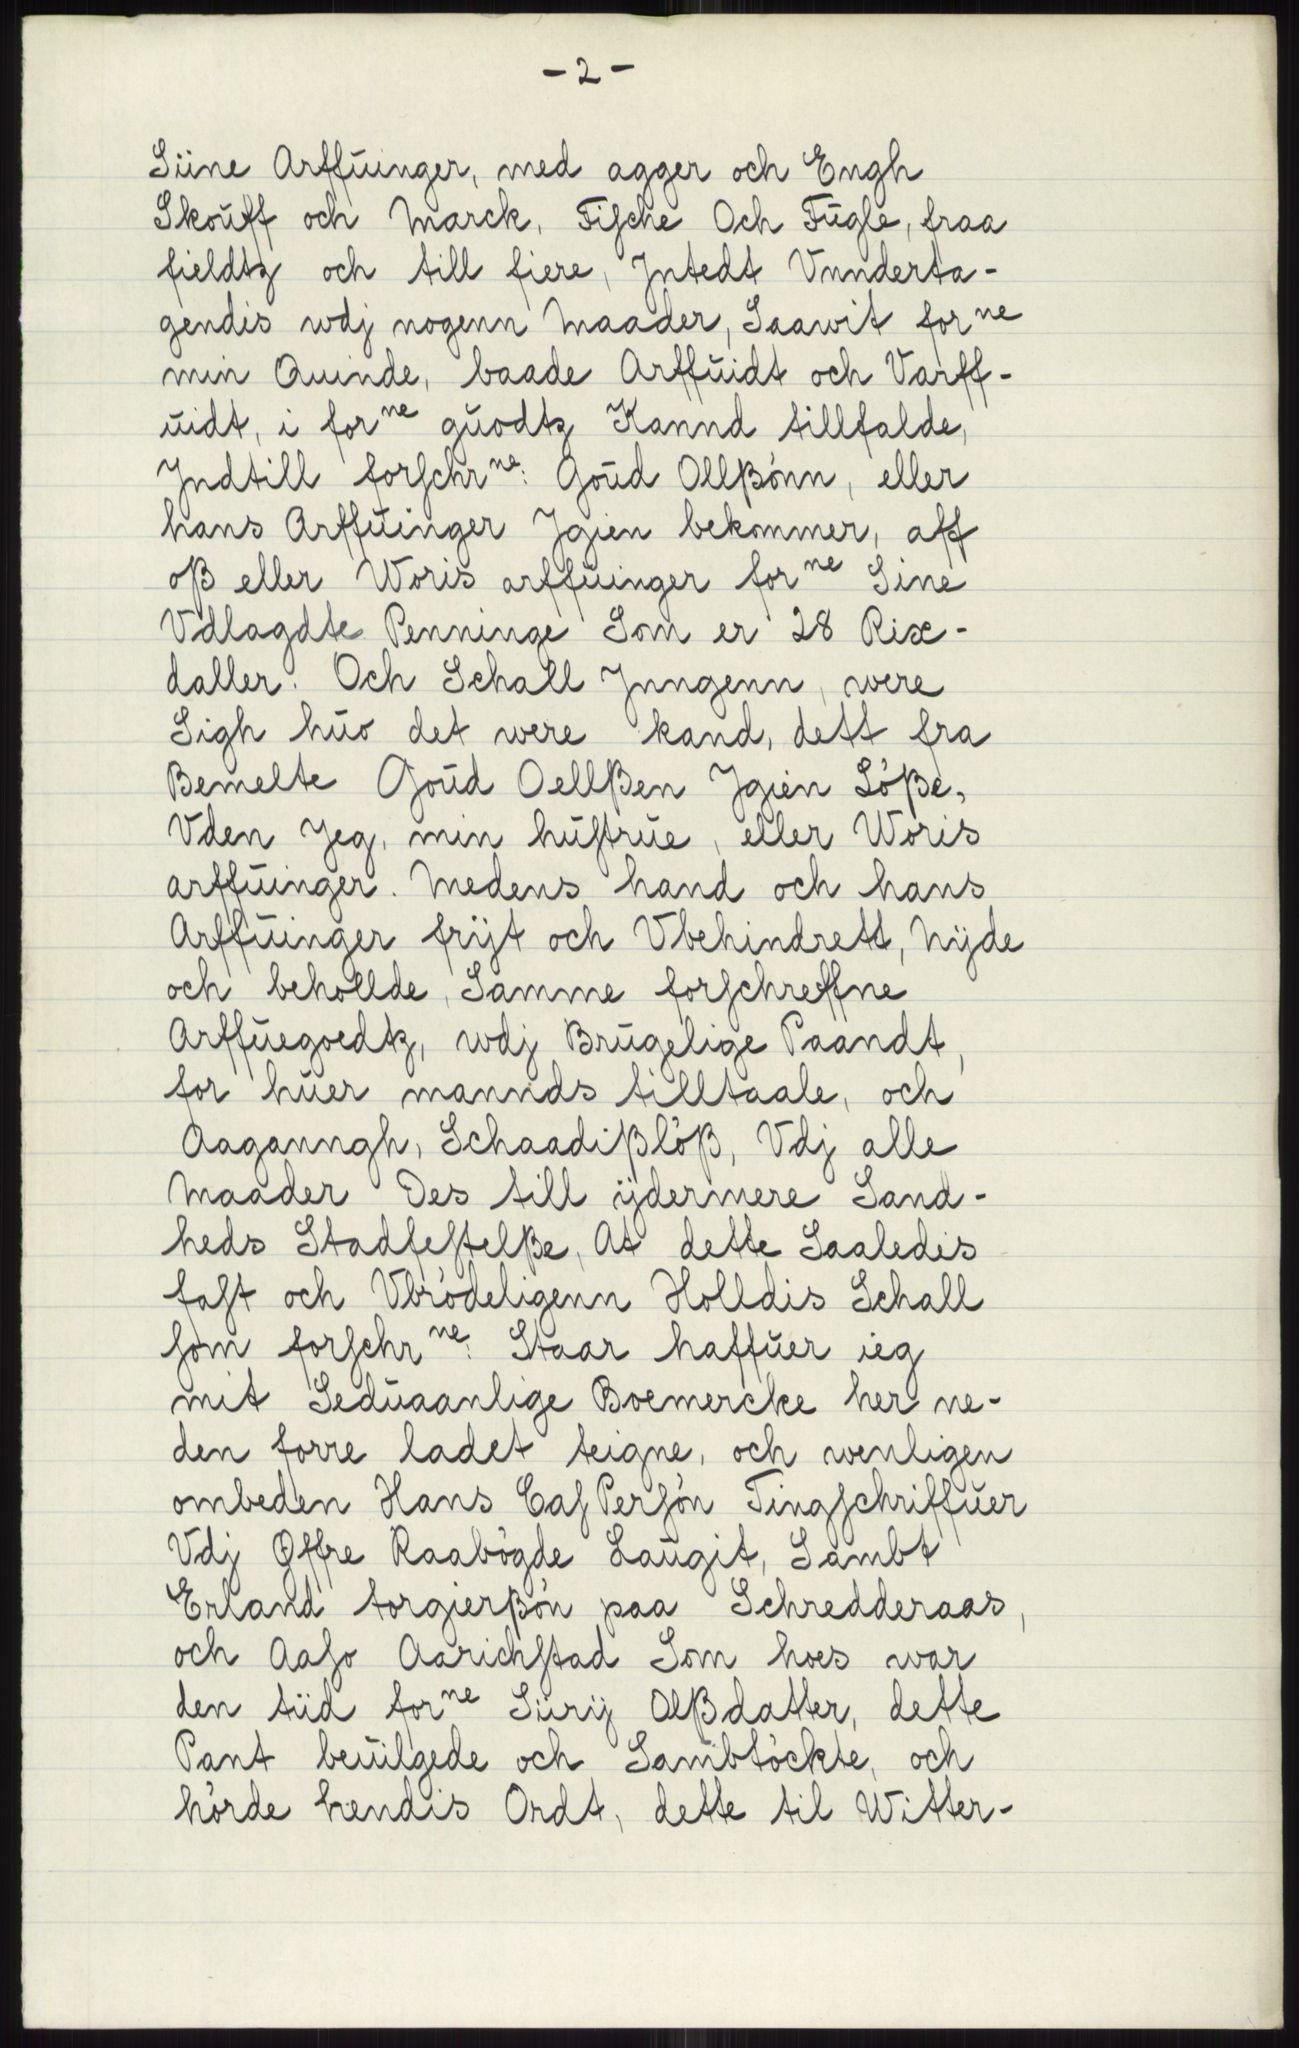 - 2 -
Siine Arffŭinger, med agger och Engh
Skoŭff och Marck, Fische Och Fŭgle, fraa
fieldtz och till fiere, Jntedt Vnnderta-
gendis wdj nogenn Maader, Saawit for ne
min Quinde, baade Arffŭidt och Varff-
ŭidt, i for ne gŭodtz Kannd tillfalde,
Jndtill forschr ne: Goŭd Ollßönn, eller
hans Arffŭinger Jgien bekommer, aff
oß eller Woris arffŭinger for ne Sine
Vdlagdte Penninge Som er 28 Rix-
daller. Och Schall Jnngenn, were
Sigh hŭo det were kand, dett fra
Bemelte Goŭd Oellßen Jgien Lößе,
Vden Jeg, min hŭstrŭe, eller Woris
arffŭinger. Medens hand och hans
Arffŭinger frijt och Vbehindrett, Nijde
och behollde, Samme forschreffne
Arffŭegoedtz, wdj Brŭgelige Paandt,
for hŭer mannds tilltaale, och
Aaganngh, Schaadißlöß, Vdj alle
Maader Des till ijdermere Sand-
heds Stadfestelße, At dette Saaledis
fast och Vbrödeligenn Holldis Schall
som forschr ne: Staar haffŭer ieg
mit Sedŭaanlige Boemercke her ne-
den forre ladet teigne, och wenligen
ombeden Hans CasPersön Tingschriffŭer
Vdj Øffre Raabögde Laŭgit, Sambt
Erland torgierßön paa Schredderaas,
och Aaso Aarichstad Som hoes war
den tiid for ne Siirij Olßdatter, dette
Pant beŭilgede och Sambtöckte, och
hörde hendis Ordt, dette til Witter-